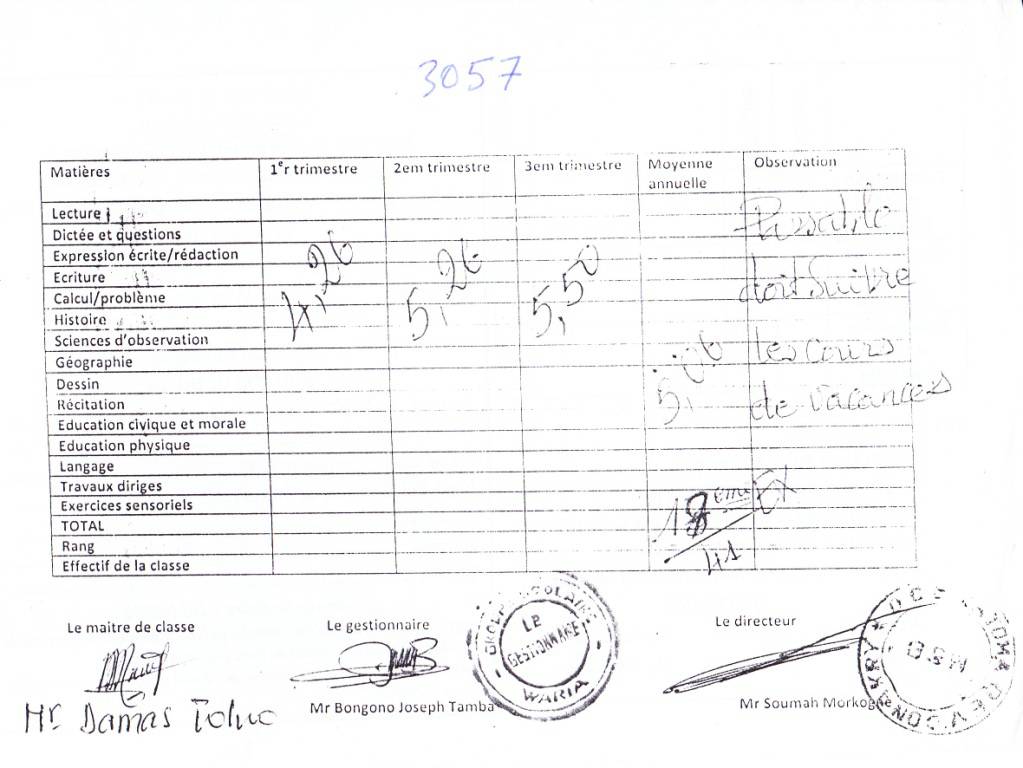 3057
Matières 1er trimestre 2em trimestre 3em trimestre Moyenne annuelle Observation
Lecture
Dictée et questions
Passable
Expression écrite/rédaction
Ecriture
4,26 5,26 5,50
doit suivre
Calcul/problème
Histoire
Sciences d'observation
les cours
Géographie
5,
Dessin
de vacances
Récitation
Education civique et morale
Education physique
Langage
Travaux diriges
Exercices sensoriels
18ème Ex
TOTAL
Rang
41
Effectif de la classe
Le maitre de classe Le gestionnaire Le directeur
LE GESTIONNAIRE
WARIA
Mr Bongono Joseph Tamba Mr Soumah
Mr Damas